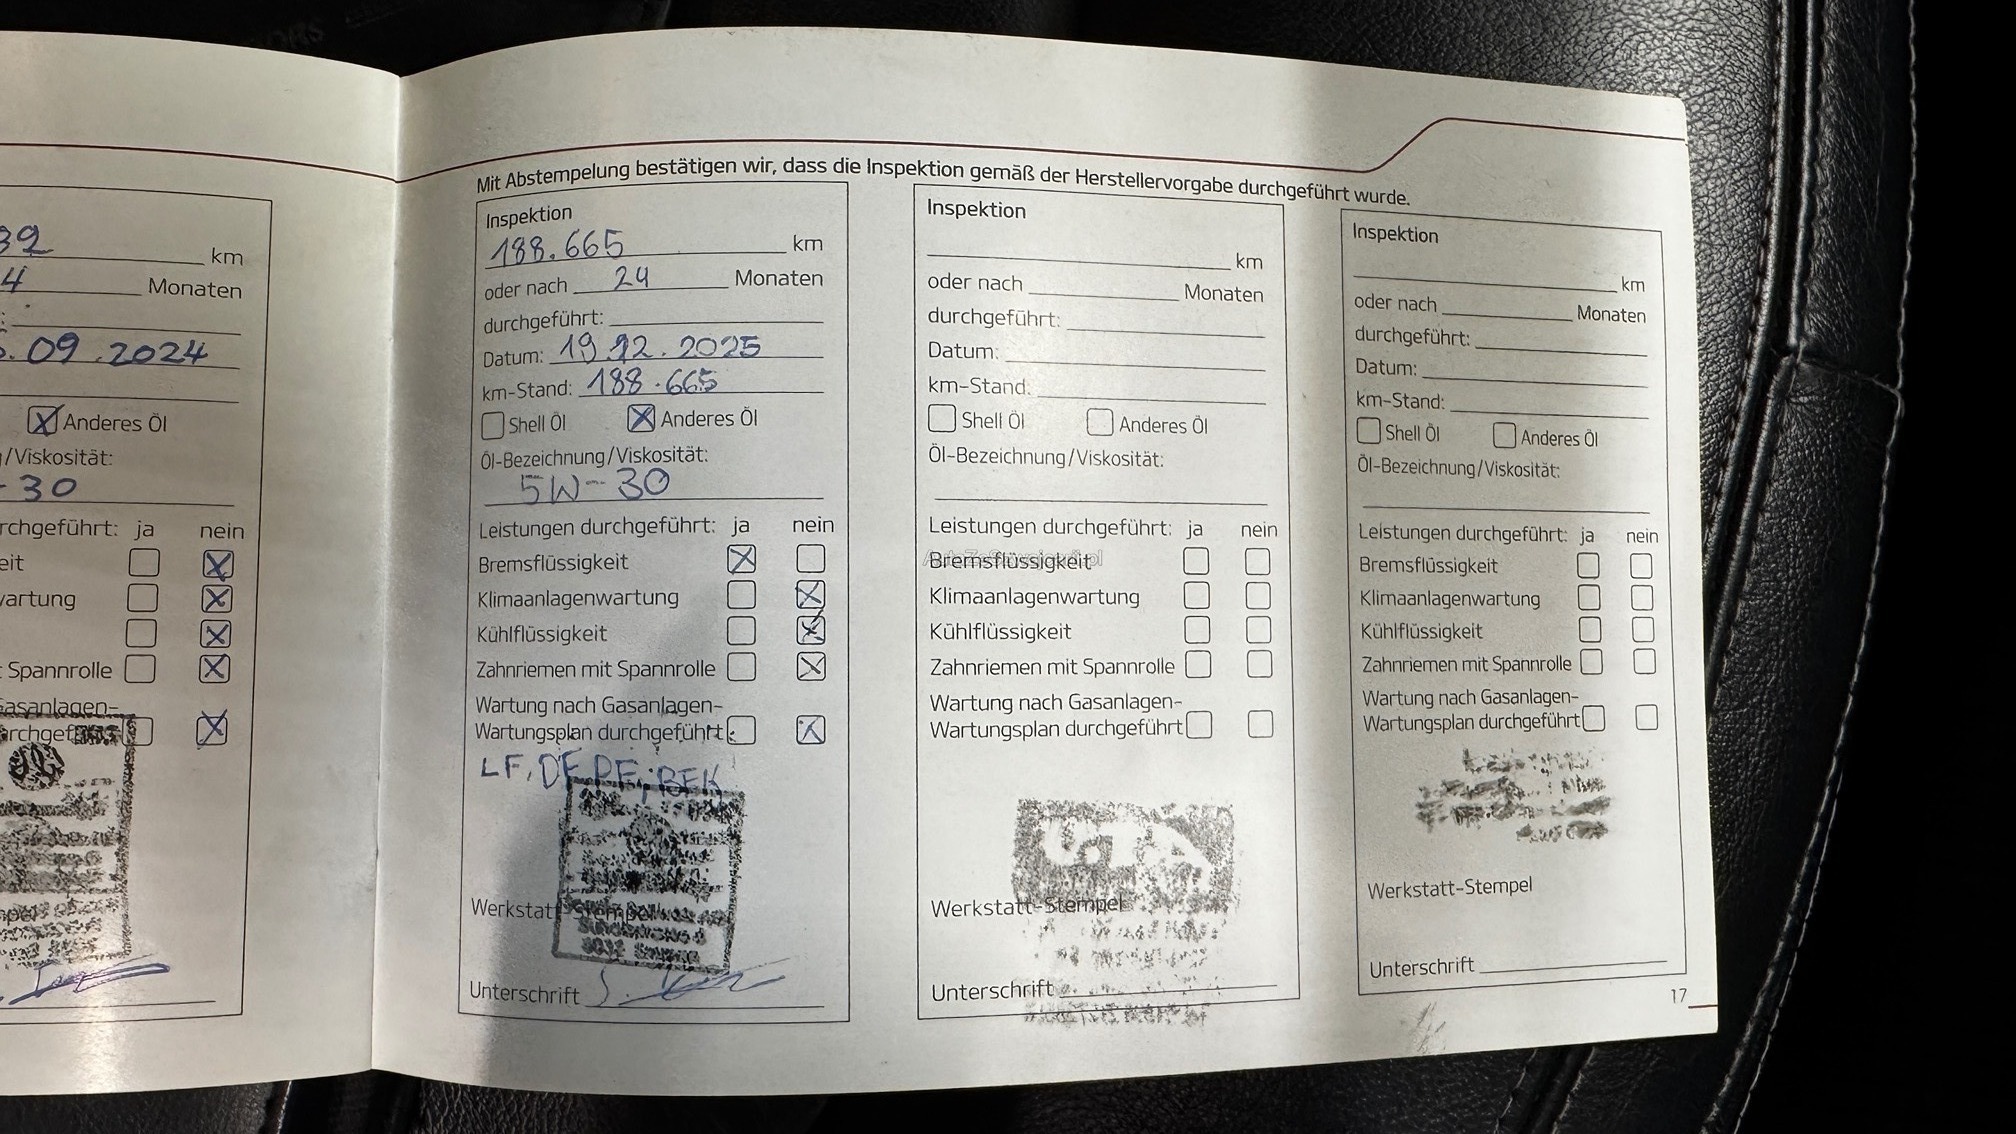 39
km
4
Monaten
.09.2024
Anderes Öl
/Viskosität:
-30
rchgeführt: ja nein
eit
artung
Spannrolle
Gasanlagen-
Mit Abstempelung bestätigen wir, dass die Inspektion gemäß der Herstellervorgabe durchgeführt wurde.
Inspektion
188.665 km
oder nach 24 Monaten
durchgeführt:
Datum: 19.12.2025
km-Stand: 188.665
Shell Öl Anderes Öl
Öl-Bezeichnung/Viskosität:
5W-30
Leistungen durchgeführt: ja nein
Bremsflüssigkeit
Klimaanlagenwartung
Kühlflüssigkeit
Zahnriemen mit Spannrolle
Wartung nach Gasanlagen-
Wartungsplan durchgeführt
LF,
Werkstatt-Stempel
Unterschrift
Inspektion
km
oder nach Monaten
durchgeführt:
Datum:
km-Stand:
Shell Öl Anderes Öl
Öl-Bezeichnung/Viskosität:
Leistungen durchgeführt: ja nein
Bremsflüssigkeit
Klimaanlagenwartung
Kühlflüssigkeit
Zahnriemen mit Spannrolle
Wartung nach Gasanlagen-
Wartungsplan durchgeführt
Werkstatt-Stempel
Unterschrift
Inspektion
km
oder nach Monaten
durchgeführt:
Datum:
km-Stand:
Shell Öl Anderes Öl
Öl-Bezeichnung/Viskosität:
Leistungen durchgeführt: ja nein
Bremsflüssigkeit
Klimaanlagenwartung
Kühlflüssigkeit
Zahnriemen mit Spannrolle
Wartung nach Gasanlagen-
Wartungsplan durchgeführt
Werkstatt-Stempel
Unterschrift
17